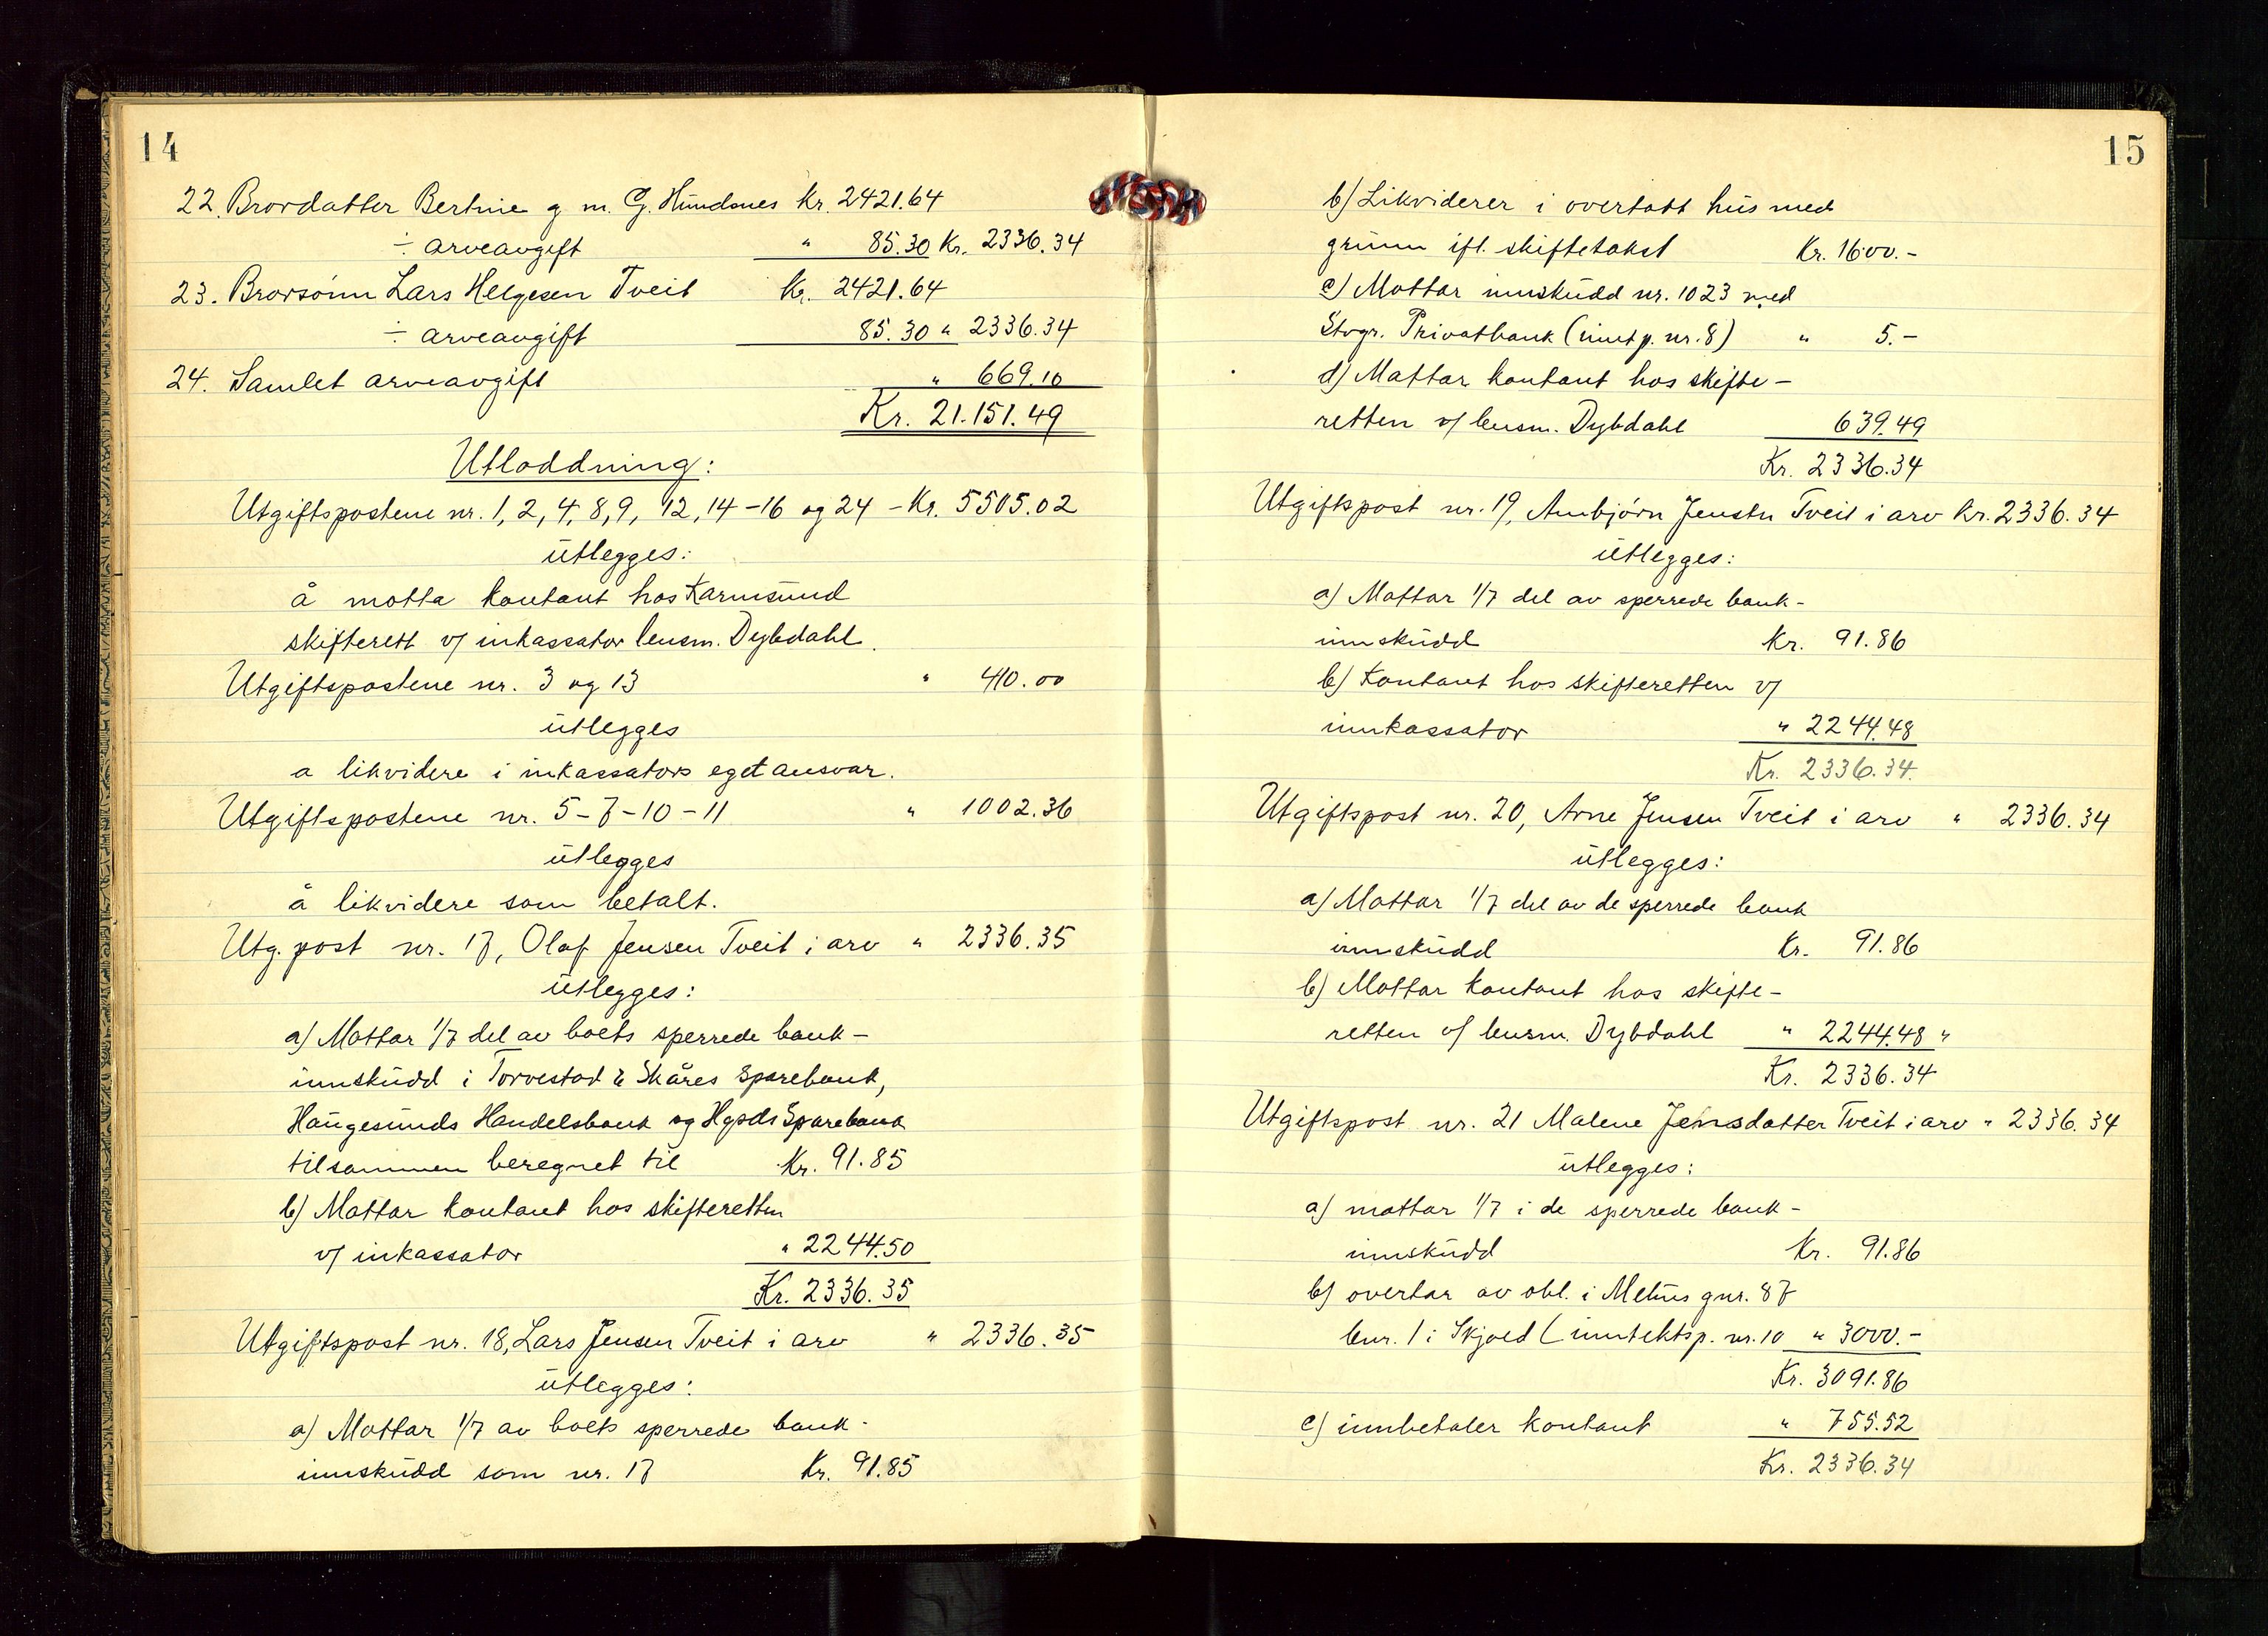 14
22. Brordatter Bertine g. m. G. Hundsnes Kr. 2421.64
÷ arveavgift " 85.30 Kr. 2336.34
23. Brorsønn Lars Helgesen Tveit Kr. 2421.64
÷ arveavgift 85.30 " 2336.34
24. Samlet arveavgift " 669.10
Kr. 21.151.49
Utloddning:
Utgiftspostene nr. 1, 2, 4, 8, 9, 12, 14-16 og 24 - Kr. 5505.02
utlegges:
å motta kontant hos Karmsund
skifterett v/ inkassator lensm. Dybdahl.
Utgiftspostene nr. 3 og 13 " 410.00
utlegges
a likvidere i inkassators eget ansvar.
Utgiftspostene nr. 5-7-10-11 " 1002.36
utlegges
å likvidere som betalt.
Utg. post nr. 17, Olaf Jensen Tveit i arv " 2336.35
utlegges:
a) Mottar 1/7 del av boets sperrede bank-
innskudd i Torvestad & Skåres Sparebank,
Haugesunds Handelsbank og Hgsds Sparebank
tilsammen beregnet til Kr. 91.85
b) Mottar kontant hos skifteretten
v/ inkassator " 2244.50
Kr. 2336.35
Utgiftspost nr. 18, Lars Jensen Tveit i arv " 2336.35
utlegges:
a) Mottar 1/7 av boets sperrede bank-
innskudd som nr. 17 Kr. 91.85
15
b) Likviderer i overtatt hus med
grunn ifl. skiftetakst Kr. 1600.-
c) Mottar innskudd nr. 1023 med
Stvgr. Privatbank (innt p. nr. 8) " 5.-
d) Mottar kontant hos skifte-
retten v/ lensm. Dybdahl 639.49
Kr. 2336.34
Utgiftspost nr. 19, Ambjørn Jensen Tveit i arv Kr. 2336.34
utlegges:
a) Mottar 1/7 del av sperrede bank-
innskudd Kr. 91.86
b) Kontant hos skifteretten v/
innkassator " 2244.48
Kr. 2336.34.
Utgiftspost nr. 20, Arne Jensen Tveit i arv " 2336.34
utlegges:
a) Mottar 1/7 del av de sperrede bank
innskudd Kr. 91.86
b) Mottar kontant hos skifte-
retten v/ lensm. Dybdahl " 2244.48 "
Kr. 2336.34
Utgiftspost nr. 21 Malene Jensdatter Tveit i arv " 2336.34
utlegges:
a) mottar 1/7 i de sperrede bank-
innskudd Kr. 91.86
b) overtar av obl. i Mehus gnr. 87
bnr. 1 i Skjold (inntektsp. nr. 10 " 3000.-
Kr. 3091.86
c) innbetaler kontant " 755.52
Kr. 2336.34